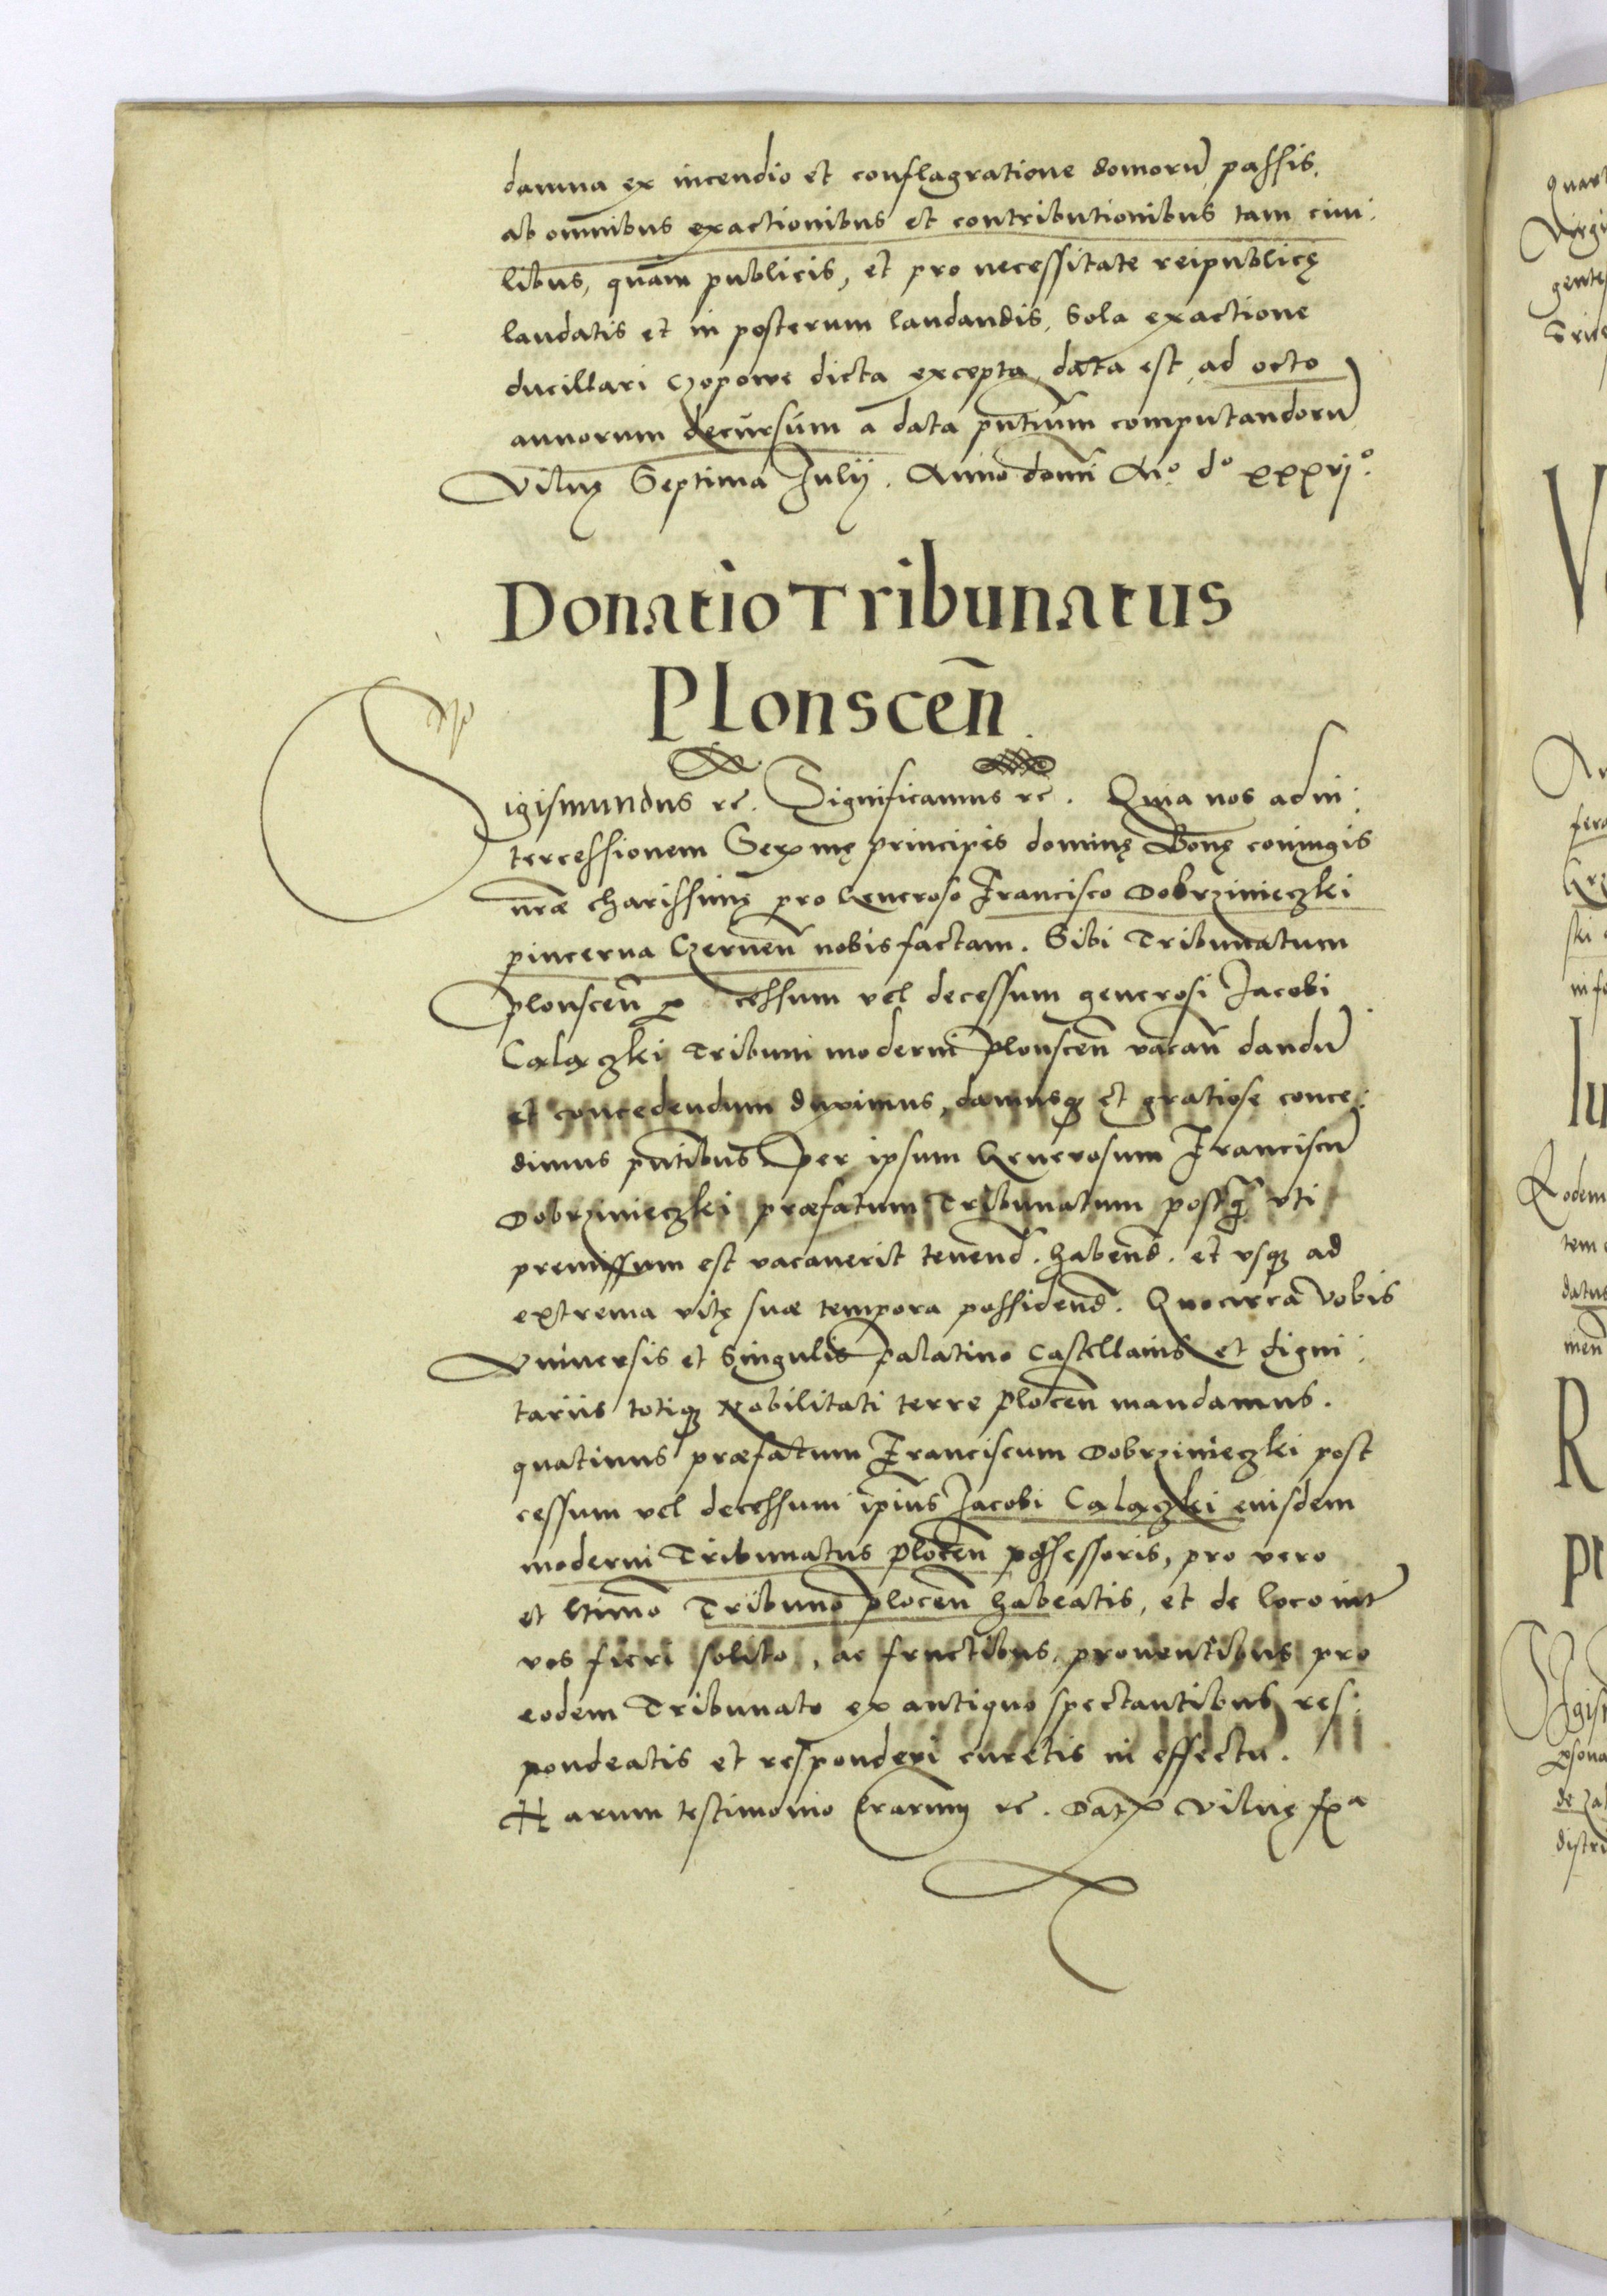 damna ex incendio et conflagratione domorũ passis.
ab omnibus exactionibus et contributionibus tam ciui:
libus, quam publicis, et pro necessitate reipublicę
laudatis et in posterum laudandis, Sola exactione
ducillari Czopowe dicta excepta, data est, ad octo
annorum decursum a data pñtium computandorũ
Vilnę Septima Julij. Anno domĩ Mº. dº xxxvjº.
Donatio Tribunatus
Plonsceñ
Sigismundus rc̃. Significamus rc̃. Quia nos ad in:
tercessionem Serᵐę principis dominę Bonę coniugis
nrae charissimę pro Generoso Francisco Dobrzinieczki
pincerna Czerneñ nobis factam. Sibi Tribunatum
plonsceñ p cessum vel decessum generosi Jacobi
Calaczki Tribuni moderni plonsceñ vacañ dandũ
et concedendum duximus, damusq et gratiose conce:
dimus pñtibus. Per ipsum Generosum Franciscũ
Dobrzinieczki praefatum Tribunatum postq̃ vti
premissum est vacauerit tenend. habend. et vsq ad
extrema vitę suae tempora possidend. Quocirca Vobis
Vniuersis et Singulis palatino Castellanis et digni:
tariis totiq Nobilitati terre Ploceñ mandamus.
quatinus praefatum Franciscum Dobrzinieczki post
cessum vel decessum ip̃ius Jacobi Calaczki eiusdem
moderni Tribunatus Ploceñ possessoris, pro vero
et ltimo Tribuno Ploceñ habeatis, et de loco int
vos fieri solito, ac fructibus, prouentibus pro
eodem Tribunato ex antiquo spectantibus res:
pondeatis et responderi curetis in effectu.
Harum testimonio lrarum rc̃. Dat Vilnę